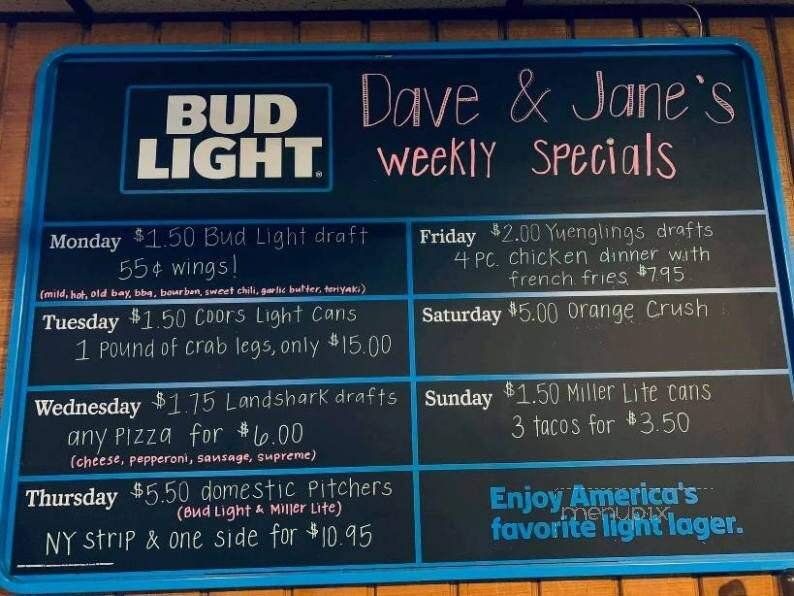 BUD
LIGHT®
Dave & Jane's
weekly specials
Monday $1.50 Bud Light draft
55¢ wings!
(mild, hot, old bay, bbq, bourbon, sweet chili, garlic butter, teriyaki)
Tuesday $1.50 Coors Light Cans
1 Pound of crab legs, only $15.00
Wednesday $1.75 Landshark drafts
any Pizza for $6.00
(cheese, pepperoni, sausage, supreme)
Thursday $5.50 domestic Pitchers
(Bud Light & Miller Lite)
NY strip & one side for $10.95
Friday $2.00 Yuenglings drafts
4 PC. chicken dinner with
french fries $7.95
Saturday $5.00 Orange Crush
Sunday $1.50 Miller Lite cans
3 tacos for $3.50
Enjoy America's
favorite light lager.
menupix